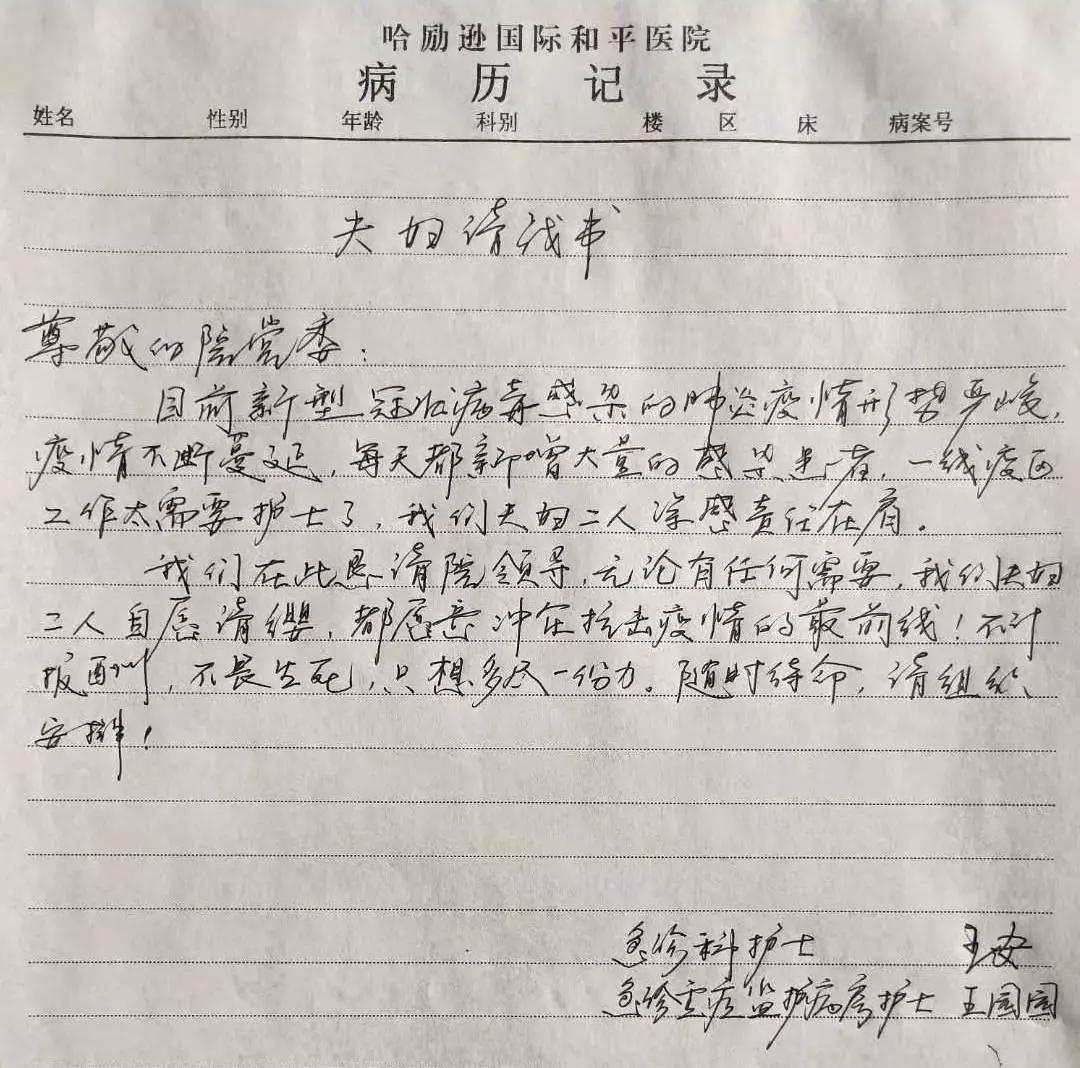 哈励逊国际和平医院
病历记录
姓名 性别 年龄 科别 楼 区 床 病案号
夫妇请战书
尊敬的院党委：
目前新型冠状病毒感染的肺炎疫情形势严峻，
疫情不断蔓延，每天都新增大量的感染患者，一线疫区
工作太需要护士了，我们夫妇二人深感责任在肩。
我们在此恳请院领导，无论有任何需要，我们夫妇
二人自愿请缨，都愿意冲在抗击疫情的最前线！不计
报酬，不畏生死，只想多尽一份力。随时待命，请组织
安排！
急诊科护士 王安
急诊重症监护病房护士 王园园